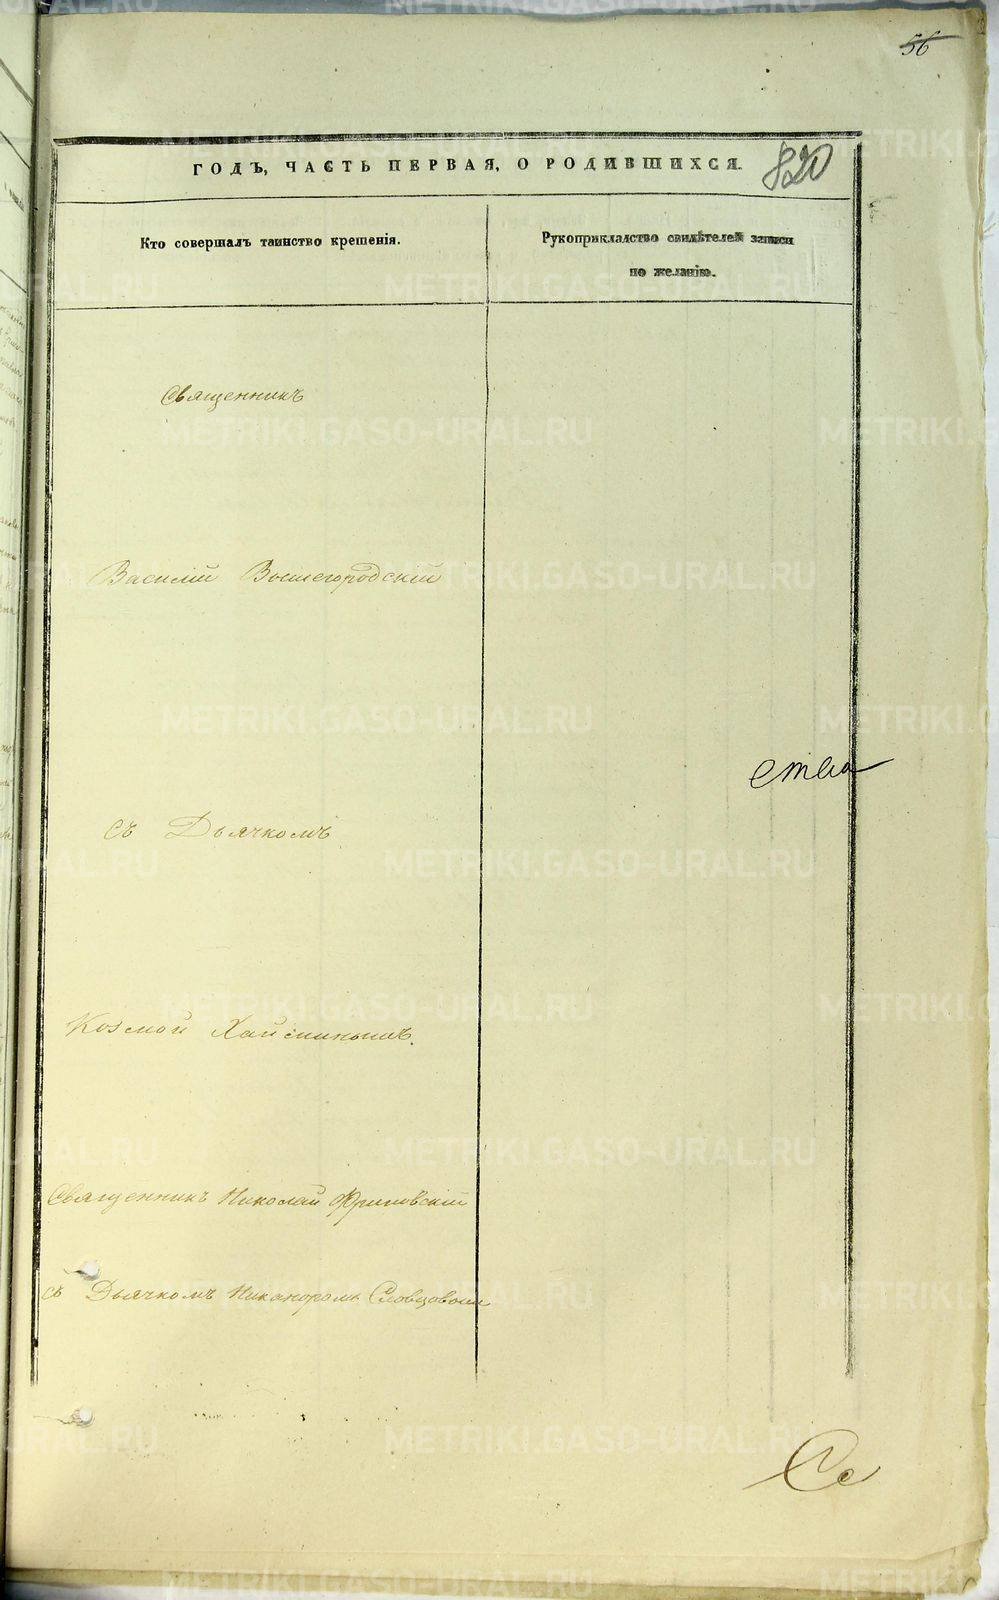 56
ГОДЪ, ЧАСТЬ ПЕРВАЯ, О РОДИВШИХСЯ.
820
Кто совершалъ таинство крещенія.
Рукоприкладство свидѣтелей записи
по желанію.
Священникъ
Василій Вышегородскій
ства
съ Дьячкомъ
Козмой
Священникъ Николай
съ Дьячкомъ Никаноромъ Словцовымъ
Се
METRIKI.GASO-URAL.RU